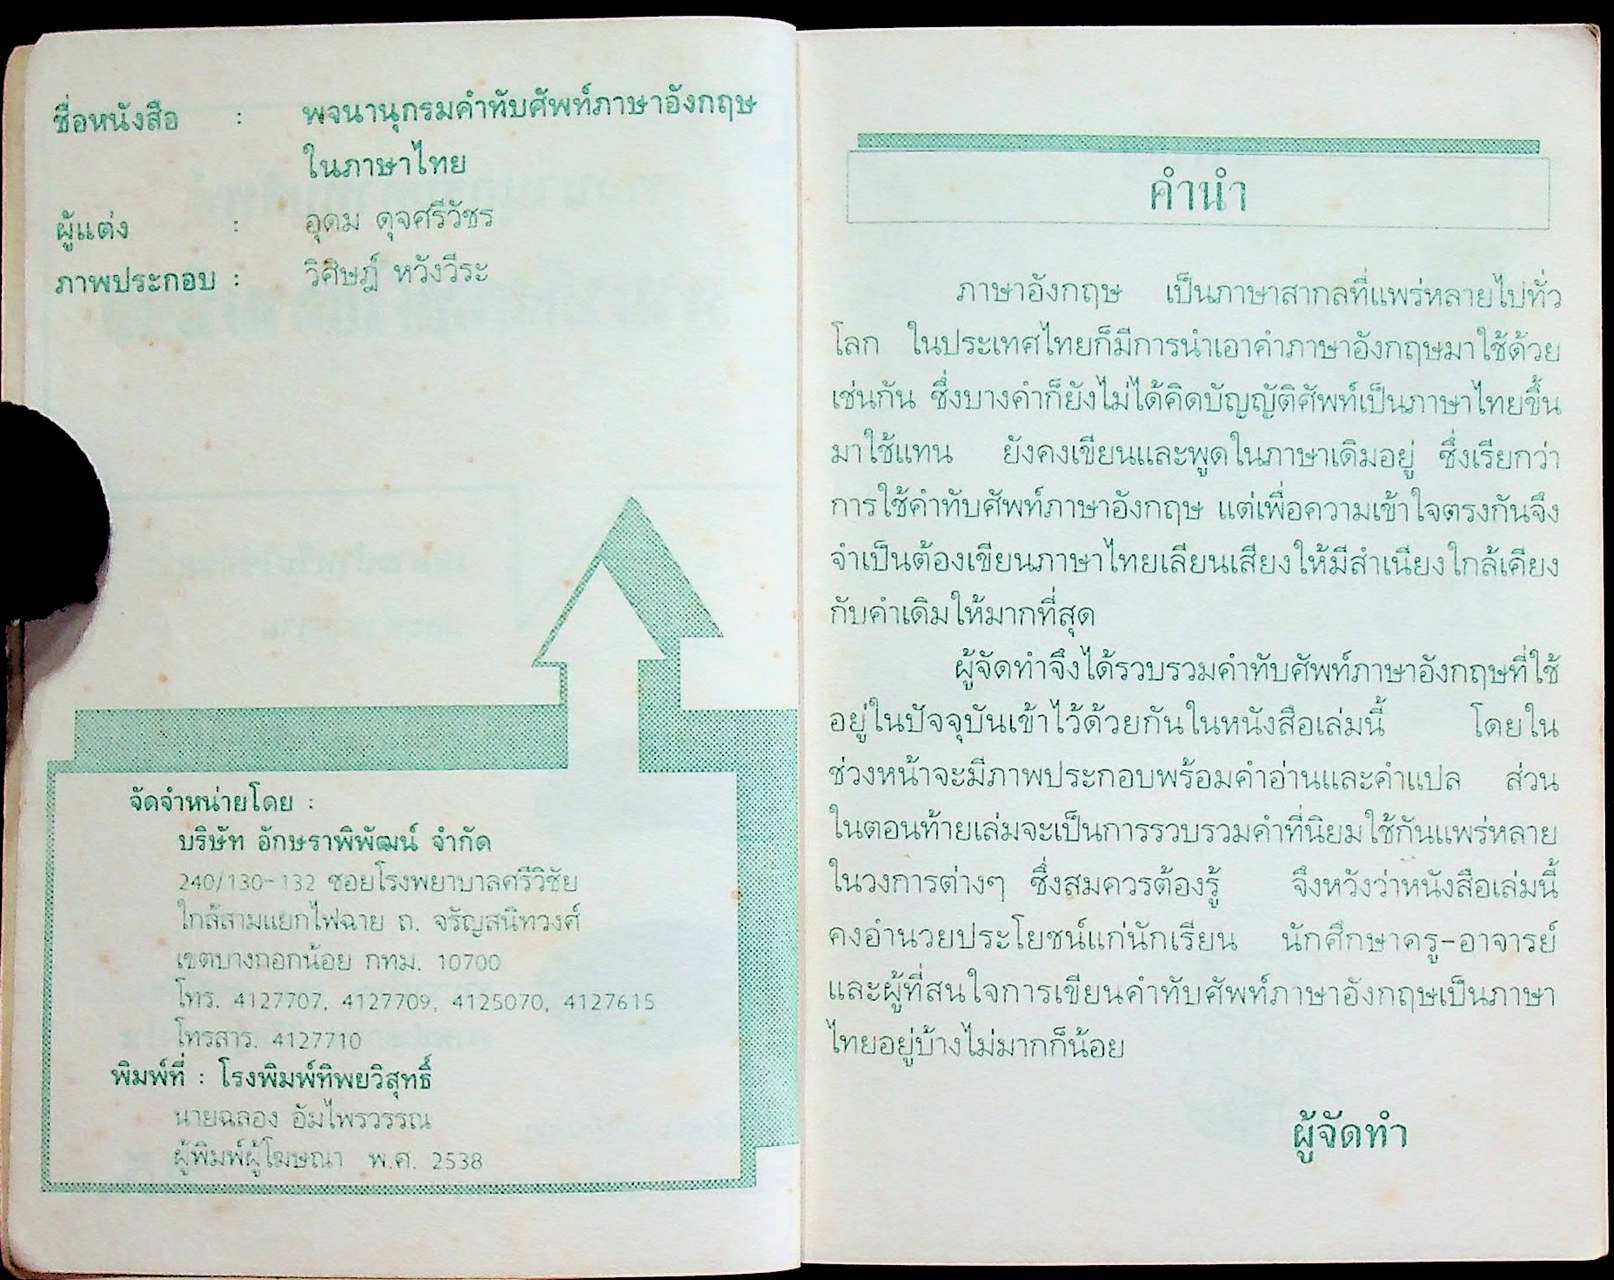 ชื่อหนังสือ : พจนานุกรมคำทับศัพท์ภาษาอังกฤษ
ในภาษาไทย
ผู้แต่ง : อุดม ดุจศรีวัชร
ภาพประกอบ : วิศิษฎ์ หวังวีระ
จัดจำหน่ายโดย :
บริษัท อักษราพิพัฒน์ จำกัด
240/130-132 ซอยโรงพยาบาลศรีวิชัย
ใกล้สามแยกไฟฉาย ถ. จรัญสนิทวงศ์
เขตบางกอกน้อย กทม. 10700
โทร. 4127707, 4127709, 4125070, 4127615
โทรสาร. 4127710
พิมพ์ที่ : โรงพิมพ์ทิพยวิสุทธิ์
นายฉลอง อัมไพรวรรณ
ผู้พิมพ์ผู้โฆษณา พ.ศ. 2538
คำนำ
ภาษาอังกฤษ เป็นภาษาสากลที่แพร่หลายไปทั่ว
โลก ในประเทศไทยก็มีการนำเอาคำภาษาอังกฤษมาใช้ด้วย
เช่นกัน ซึ่งบางคำก็ยังไม่ได้คิดบัญญัติศัพท์เป็นภาษาไทยขึ้น
มาใช้แทน ยังคงเขียนและพูดในภาษาเดิมอยู่ ซึ่งเรียกว่า
การใช้คำทับศัพท์ภาษาอังกฤษ แต่เพื่อความเข้าใจตรงกันจึง
จำเป็นต้องเขียนภาษาไทยเลียนเสียงให้มีสำเนียงใกล้เคียง
กับคำเดิมให้มากที่สุด
ผู้จัดทำจึงได้รวบรวมคำทับศัพท์ภาษาอังกฤษที่ใช้
อยู่ในปัจจุบันเข้าไว้ด้วยกันในหนังสือเล่มนี้ โดยใน
ช่วงหน้าจะมีภาพประกอบพร้อมคำอ่านและคำแปล ส่วน
ในตอนท้ายเล่มจะเป็นการรวบรวมคำที่นิยมใช้กันแพร่หลาย
ในวงการต่างๆ ซึ่งสมควรต้องรู้ จึงหวังว่าหนังสือเล่มนี้
คงอำนวยประโยชน์แก่นักเรียน นักศึกษาครู-อาจารย์
และผู้ที่สนใจการเขียนคำทับศัพท์ภาษาอังกฤษเป็นภาษา
ไทยอยู่บ้างไม่มากก็น้อย
ผู้จัดทำ